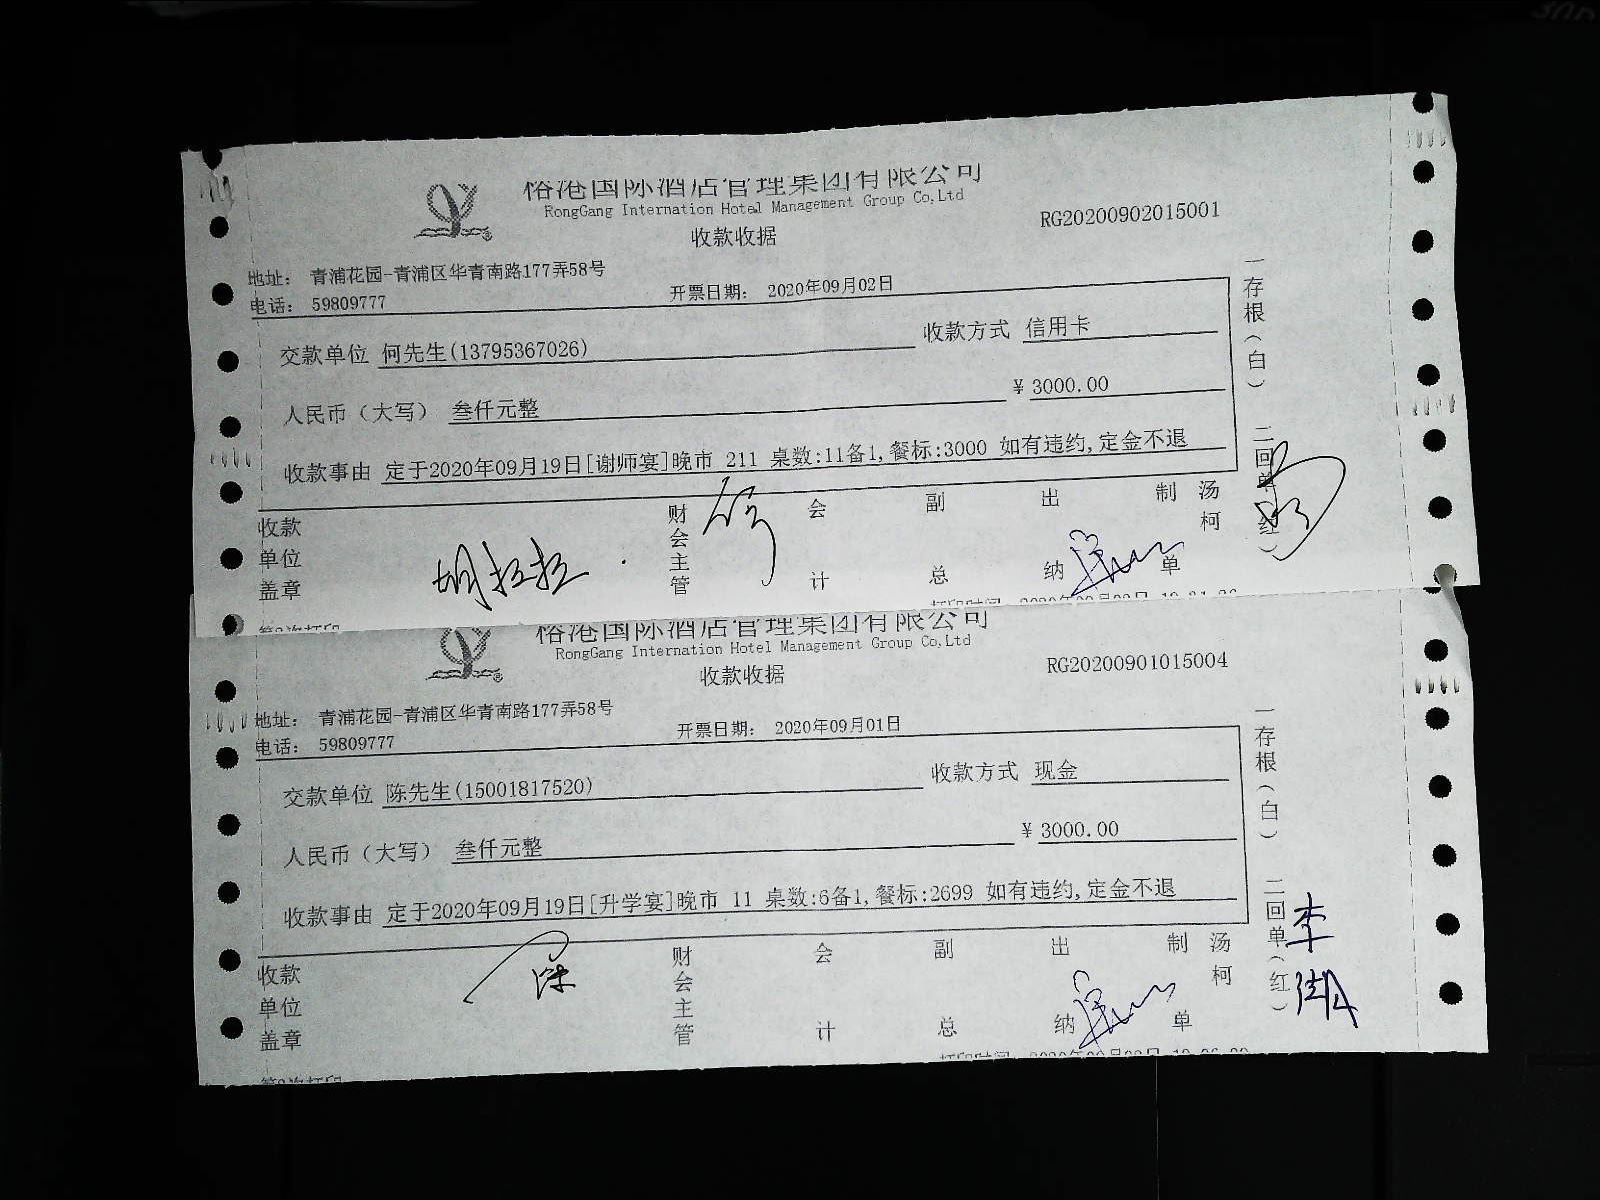 裕港国际酒店管理集团有限公司
RongGang Internation Hotel Management Group Co,Ltd
收款收据
RG20200902015001
地址： 青浦花园-青浦区华青南路177弄58号
电话： 59809777
开票日期： 2020年09月02日
交款单位 何先生(13795367026)
收款方式 信用卡
人民币（大写） 叁仟元整
¥ 3000.00
收款事由 定于2020年09月19日[谢师宴]晚市 211 桌数:11备1,餐标:3000 如有违约,定金不退
一存根（白） 二回单（红）
收款单位盖章
胡拉拉
财会主管
会计
副总
出纳
制单
汤柯
第2次打印
裕港国际酒店管理集团有限公司
RongGang Internation Hotel Management Group Co,Ltd
收款收据
RG20200901015004
地址： 青浦花园-青浦区华青南路177弄58号
电话： 59809777
开票日期： 2020年09月01日
交款单位 陈先生(15001817520)
收款方式 现金
人民币（大写） 叁仟元整
¥ 3000.00
收款事由 定于2020年09月19日[升学宴]晚市 11 桌数:6备1,餐标:2699 如有违约,定金不退
一存根（白） 二回单（红）
收款单位盖章
财会主管
会计
副总
出纳
制单
汤柯